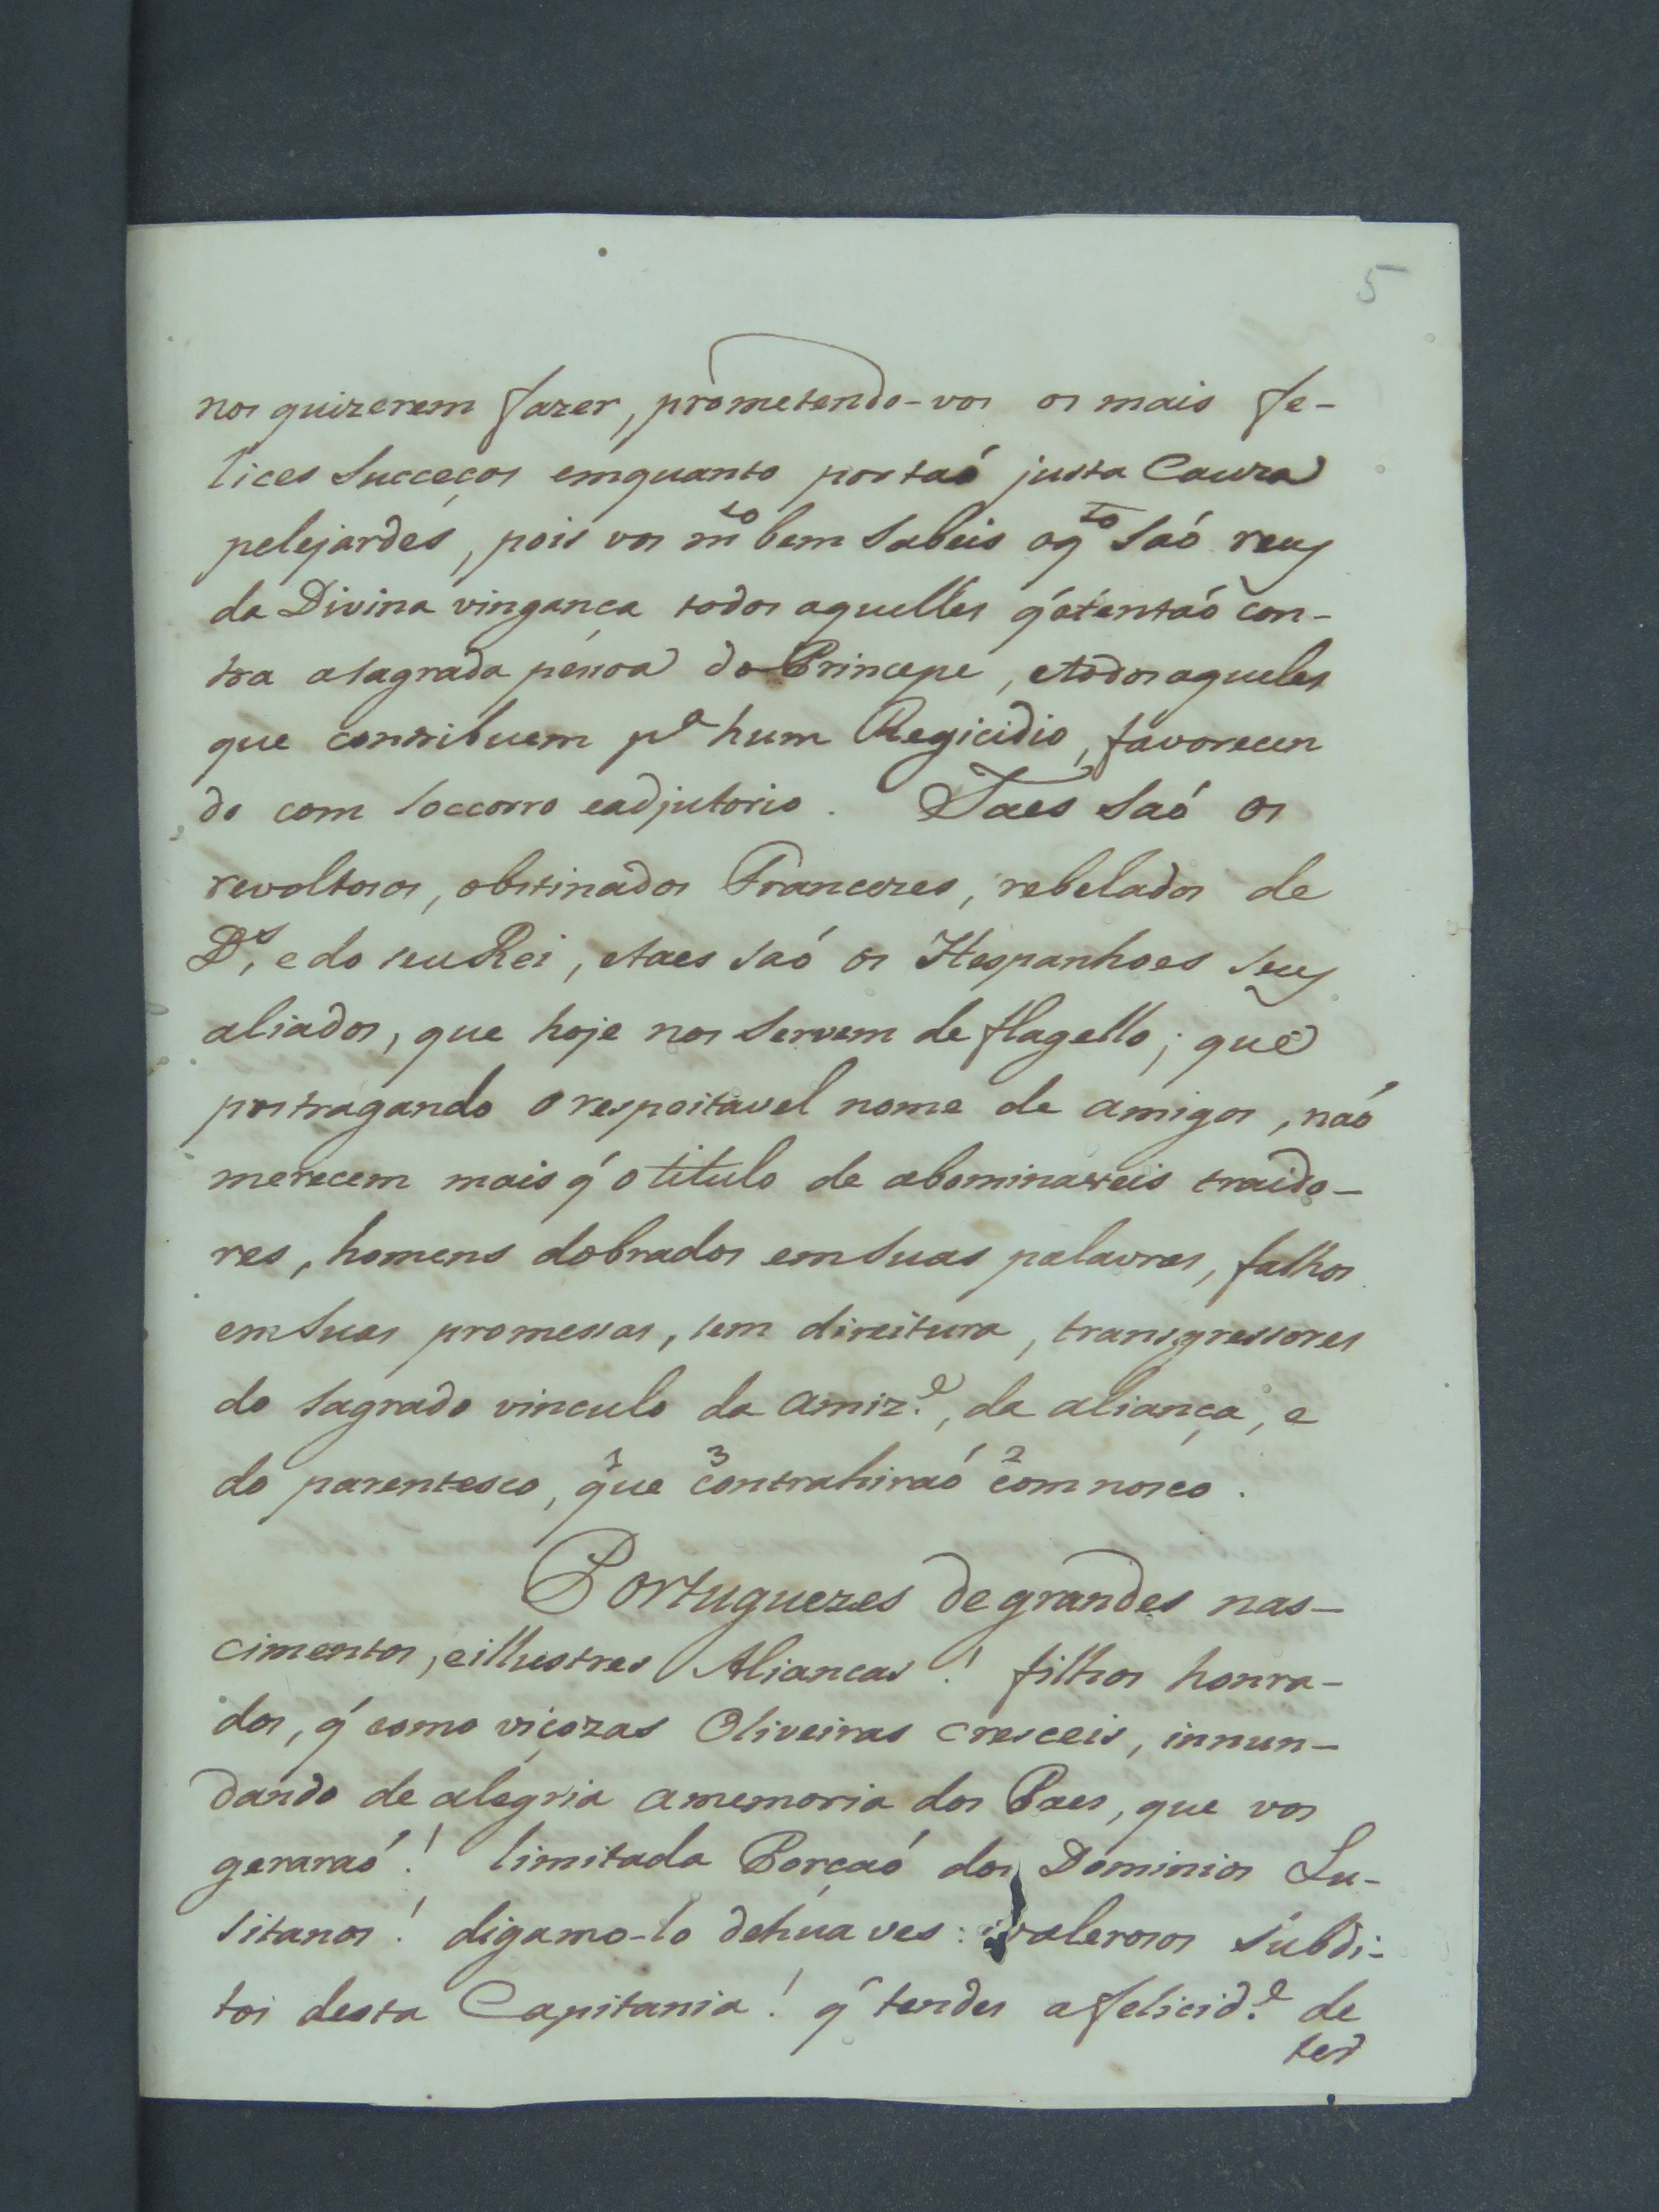 5
nos quizerem fazer, prometendo-vos os mais fe-
lices Succeços emquanto por taó justa Cauza
pelejardes, pois vos m.to bem Sabeis oq.to Saó reus
da Divina vinganca todos aquelles q́ atentaó con-
tra aSagrada pessoa do Princepe, etodos aqueles
que contribuem p.a hum Regicidio, favorecen
do com Soccorro eadjutorio. Taes Saó os
revoltosos, obstinados Francezes, rebelados de
D.s, e do seu Rei, etaes saó os Hespanhoes seus
aliados, que hoje nos Servem de flagello; que
postragando o respeitavel nome de amigos, naó
merecem mais q́ o titulo de abominaveis traido-
res, homens dobrados em Suas palavras, falhos
em Suas promessas, sem direitura, transgressores
do Sagrado vinculo da amiz.e, da aliança, e
do parentesco, 1que 3contrahiraó 2comnosco.
Portuguezes de grandes nas-
cimentos, eillustres Aliancas! filhos honra-
dos, q́ como viçozas Oliveiras cresceis, innun-
dando de alegria amemoria dos Paes, que vos
geraraó! limitada Porcaó dos Dominios Lu-
sitanos! digamo-lo dehúa ves: valerosos Súbdi-
tos desta Capitania! q́ tendes afelicid.e de
ter